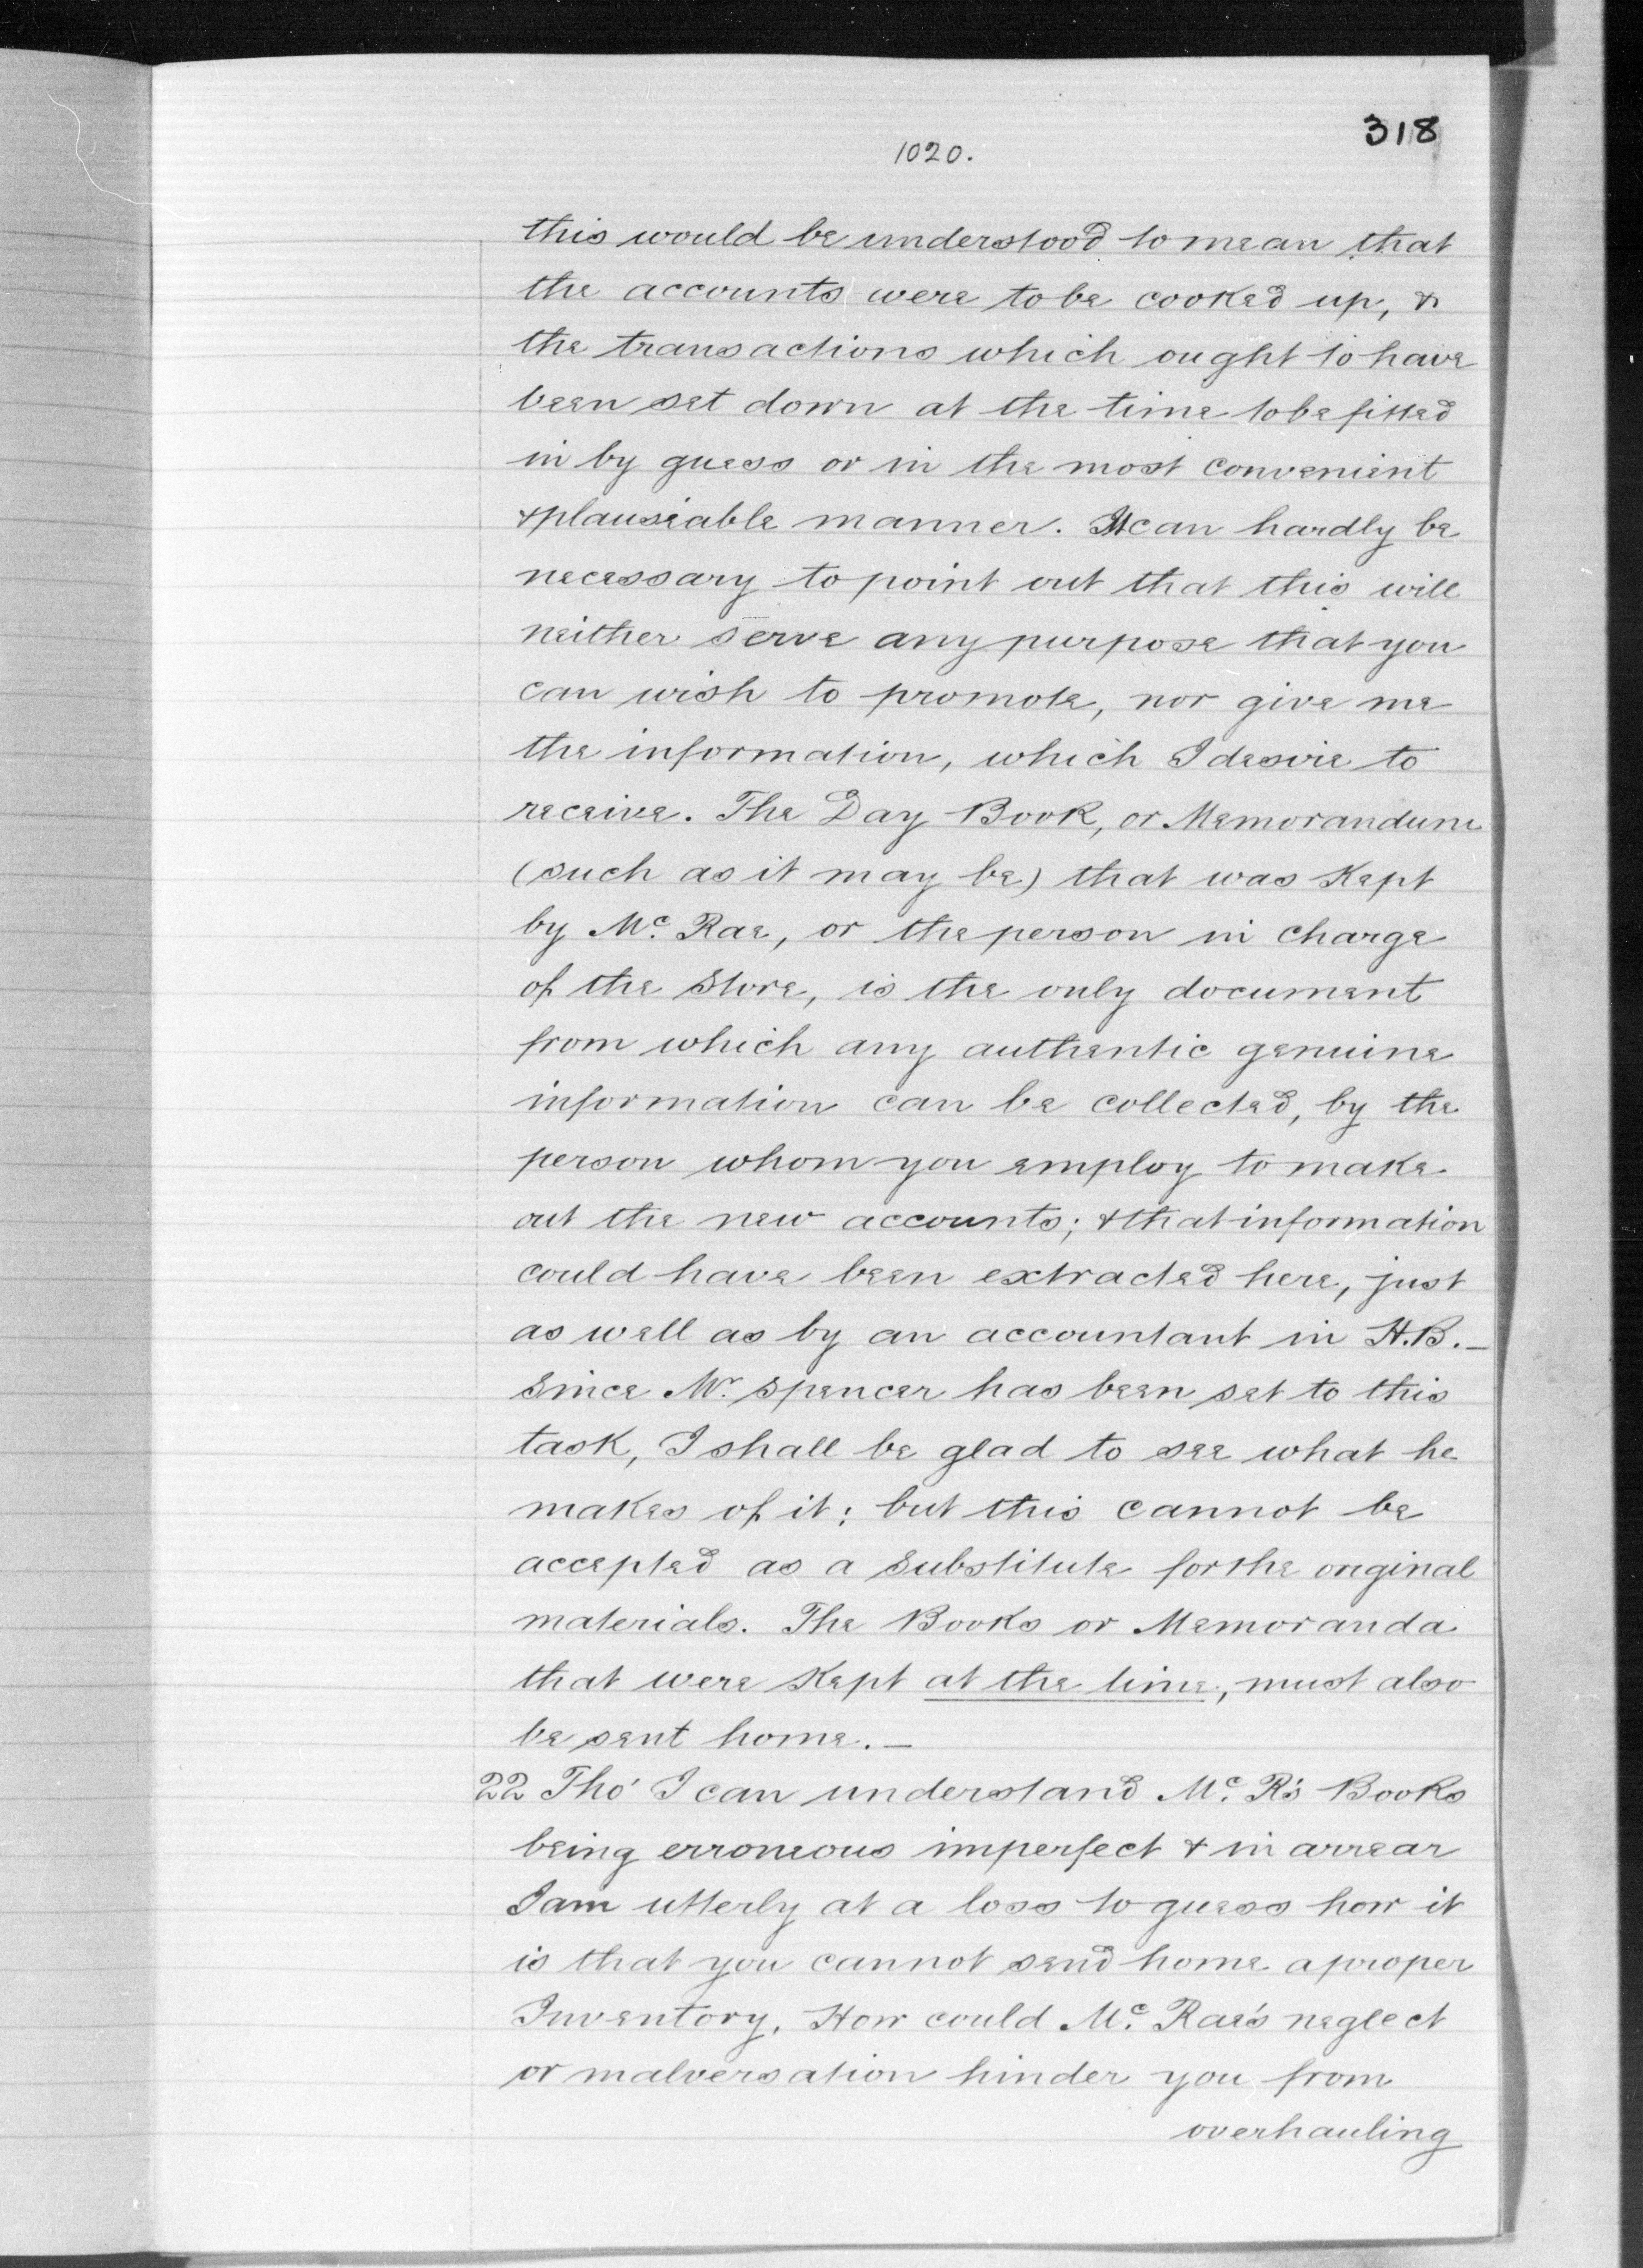 318
1020.
this would be understood to mean that
the accounts were to be cooked up, &
the transactions which ought to have
been set down at the time to be fitted
in by guess or in the most convenient
& plauseable manner. It can hardly be
necessary to point out that this will
neither serve any purpose that you
can wish to promote, nor give me
the information, which I desire to
receive. The Day Book, or Memorandum
(such as it may be) that was Kept
by Mc. Rae, or the person in charge
of the Store, is the only document
from which any authentic genuine
information can be collected, by the
person whom you employ to make
out the new accounts; & that information
could have been extracted here, just
as well as by an accountant in H.B. —
Since Mr. Spencer has been set to this
task, I shall be glad to see what he
makes of it; but this cannot be
accepted as a Substitute for the original
materials. The Books or Memoranda
that were Kept at the time, must also
be sent home. —
22 Tho' I can understand Mc. R's Books
being erroneous imperfect & in arrear
I am utterly at a loss to guess how it
is that you cannot send home a proper
Inventory. How could Mc. Rae's neglect
or malversation hinder you from
overhauling